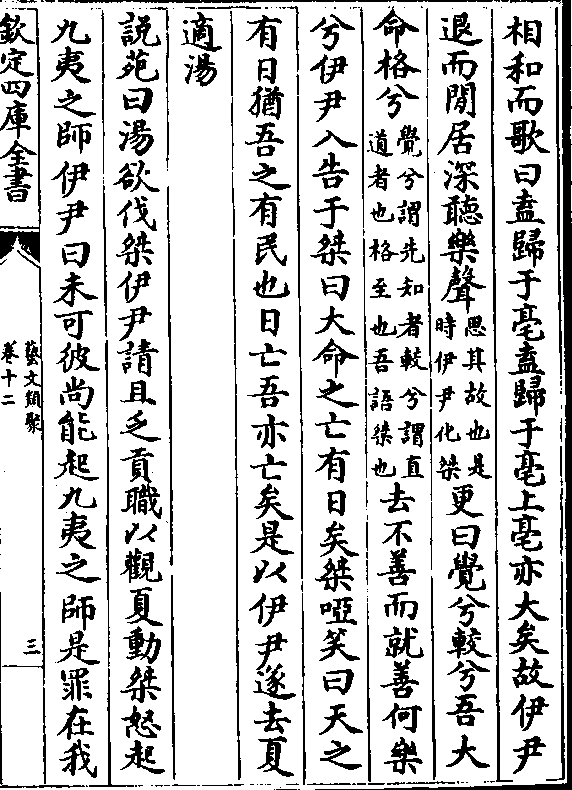 相和而歌曰盍歸于亳盍歸于亳上亳亦大矣故伊尹
退而閒居深聽樂聲思其故也是時伊尹化桀更曰覺兮較兮吾大
命格兮覺兮謂先知者較兮謂直道者也格至也吾語桀也去不善而就善何樂
兮伊尹入告于桀曰大命之亡有日矣桀啞笑曰天之
有日猶吾之有民也日亡吾亦亡矣是以伊尹遂去夏
適湯
說苑曰湯欲伐桀伊尹請且乏貢職以觀夏動桀怒起
九夷之師伊尹曰未可彼尚能起九夷之師是罪在我
欽定四庫全書
藝文類聚
卷十二
三